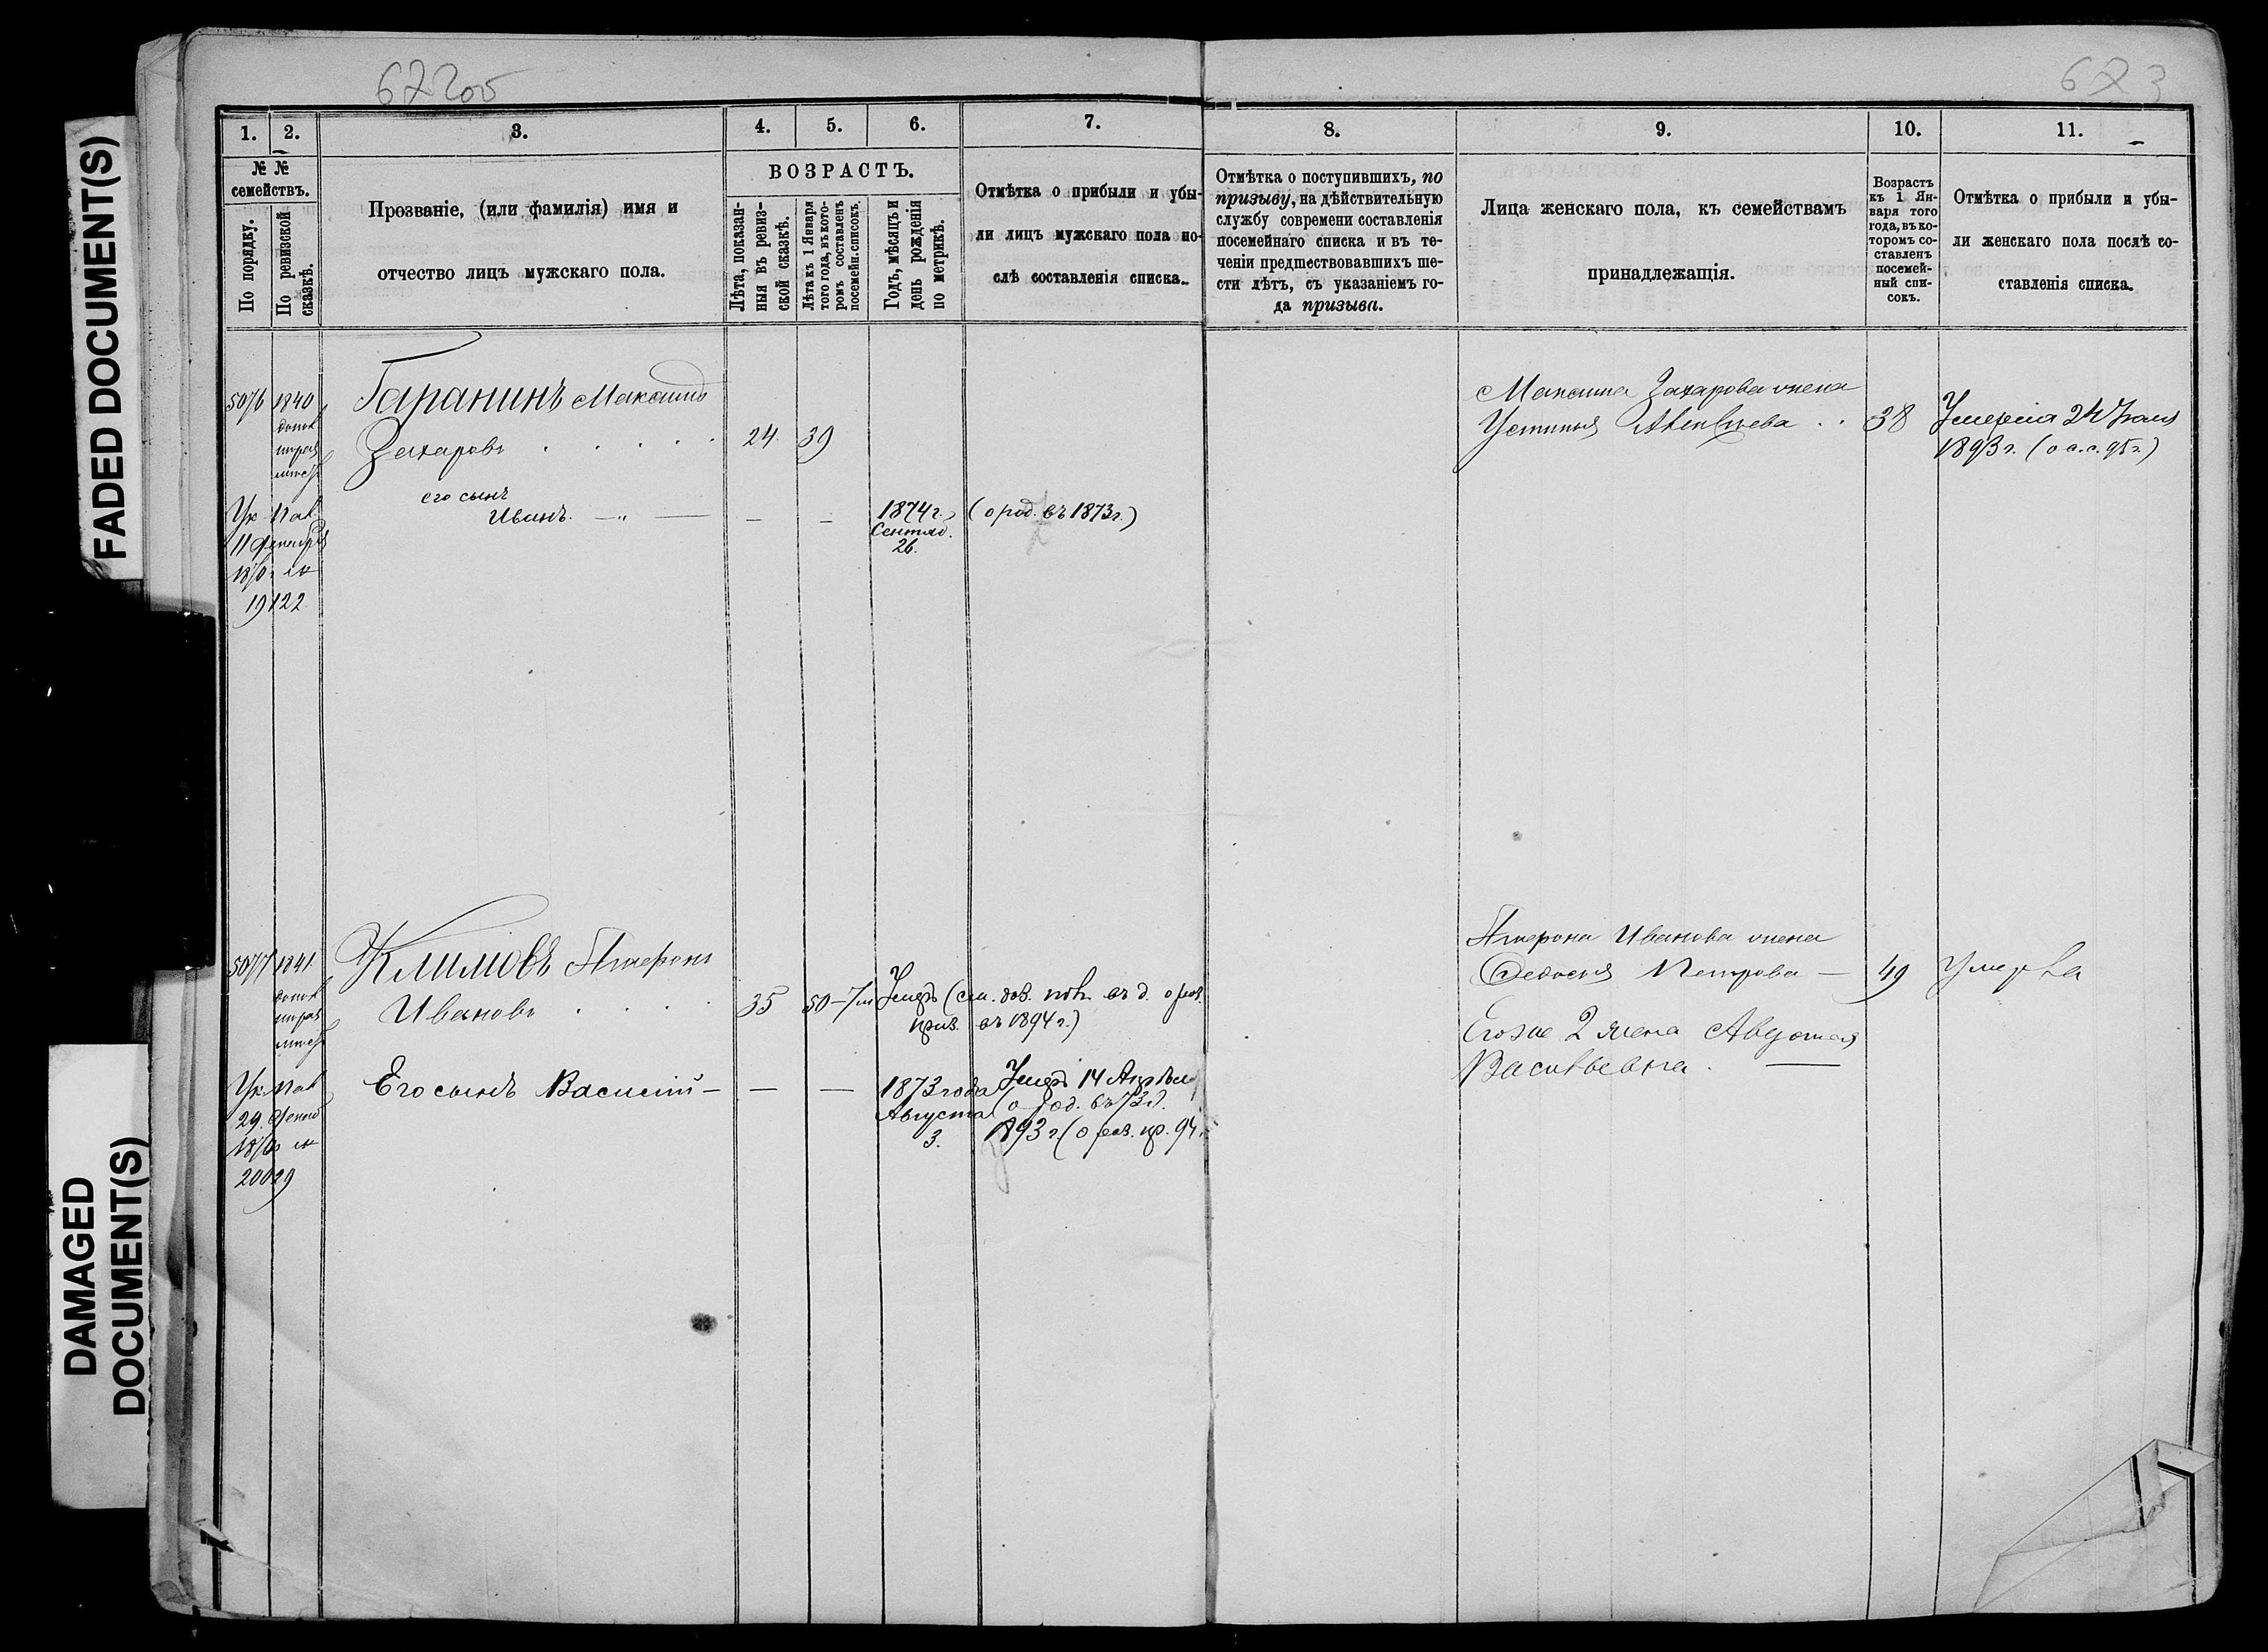 FADED DOCUMENT(S)
DAMAGED
DOCUMENT(S)
622об
623
1.
2.
3.
4.
5.
6.
7.
8.
9.
10.
11.
№ №
семействъ.
По порядку.
По ревизской
сказкѣ.
Прозваніе, (или фамилія) имя и
отчество лицъ мужскаго пола.
ВОЗРАСТЪ.
Лѣта, показан-
ныя въ ревиз-
ской сказкѣ.
Лѣта къ 1 Января
того года, въ кото-
ромъ составленъ
посемейн. списокъ.
Годъ, мѣсяцъ и
день рожденія
по метрикѣ.
Отмѣтка о прибыли и убы-
ли лицъ мужскаго пола по-
слѣ составленія списка.
Отмѣтка о поступившихъ, по
призыву, на дѣйствительную
службу современи составленія
посемейнаго списка и въ те-
ченіи предшествовавшихъ ше-
сти лѣтъ, съ указаніемъ го-
да призыва.
Лица женскаго пола, къ семействамъ
принадлежащія.
Возрастъ
къ 1 Ян-
варя того
года, въ ко-
торомъ со-
ставленъ
посемей-
ный спи-
сокъ.
Отмѣтка о прибыли и убы-
ли женскаго пола послѣ со-
ставленія списка.
5076
1840
Гаранинъ Максимъ
Захаровъ
24
39
Максима Захарова жена
Устинья
38
1893 г. (о с.с. 95 г.)
его сынъ
Иванъ — „ —
— —
1874 г.
Сентяб.
26.
(о род. въ 1873 г.)
11
19122
5077
1841
Климовъ
Ивановъ
35
50
Умеръ
въ 1894 г.)
Ивановa жена
Федосья Петрова —
49
Умерла
Его же 2 жена Авдотья
Васильевна. —
Его сынъ Василій —
— —
1873 года
Августа
3.
Умеръ 14 Апрѣля
(о род. въ 73 г.
1893 г. (о 94
29
20029